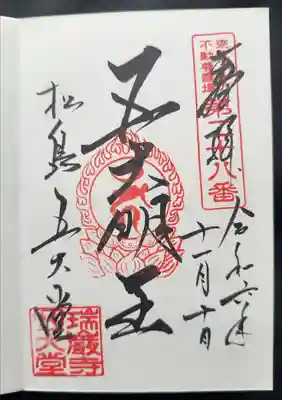 奉拝
東北三十六不動尊霊場
第二十八番
令和六年
十一月十日
五大明王
松島 五大堂
瑞巌寺
五大堂